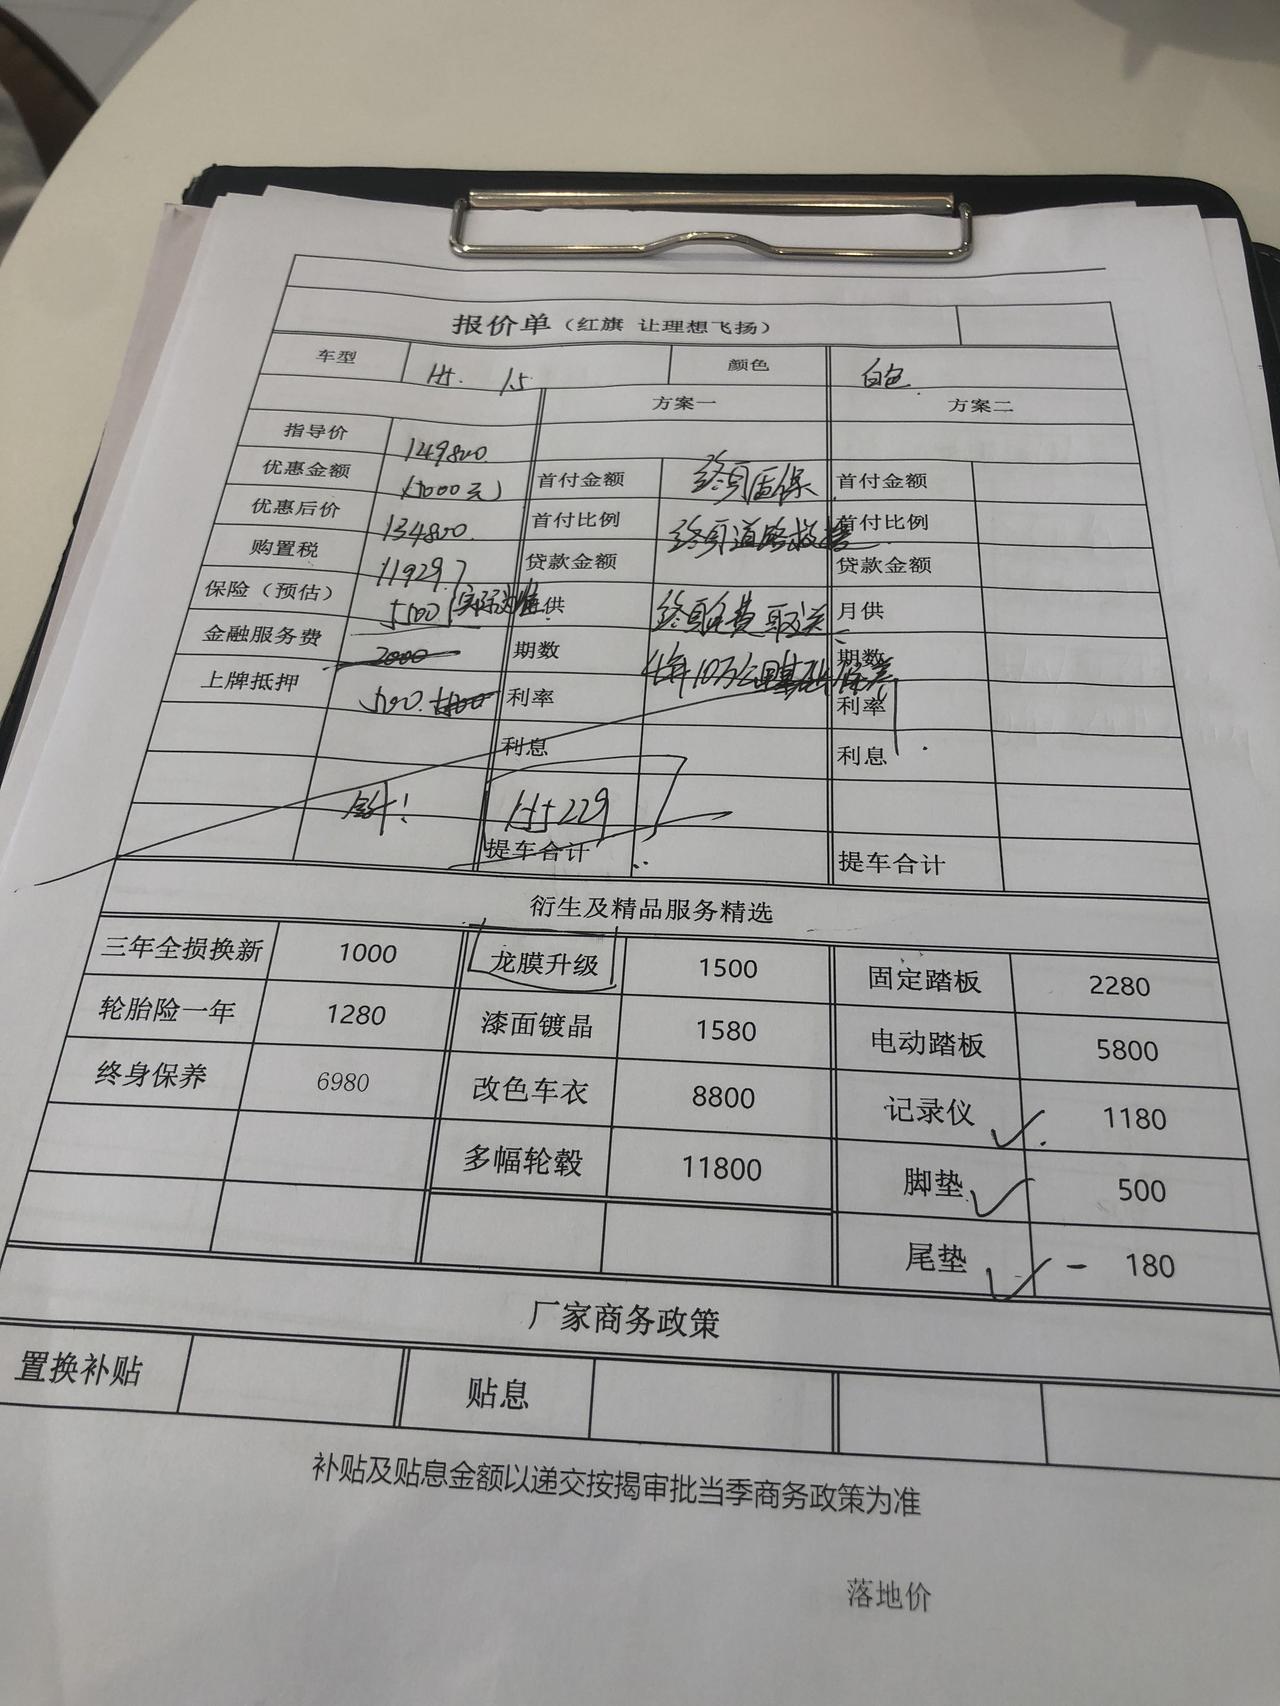 报价单（红旗 让理想飞扬）
车型 H5. 1.5 颜色 白色.
方案一 方案二
指导价 149800.
优惠金额 首付金额 终身质保 首付金额
优惠后价 134800. 首付比例 终身道路救援 首付比例
购置税 11929.7 贷款金额 贷款金额
保险（预估） 供 终身免费取送 月供
金融服务费 2000 期数 10万公里基础保养 期数
上牌抵押 500. 利率 利率
利息 利息
合计！
提车合计 提车合计
衍生及精品服务精选
三年全损换新 1000 龙膜升级 1500 固定踏板 2280
轮胎险一年 1280 漆面镀晶 1580 电动踏板 5800
终身保养 6980 改色车衣 8800 记录仪 1180
多幅轮毂 11800 脚垫 500
尾垫 - 180
厂家商务政策
置换补贴 贴息
补贴及贴息金额以递交按揭审批当季商务政策为准
落地价